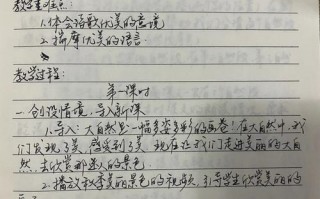 教学重难点:
1.体会诗歌优美的意境
2.揣摩优美的语言
教学过程:
第一课时
一.创设情境,导入新课
1.导入:大自然是一幅多姿多彩的画卷:在大自然中,我
们发现了美,感受到了美 现在让我们走进美丽的大自
然,去欣赏那迷人的景色
2.播放秋季美丽景色的视频,引导学生欣赏美丽的